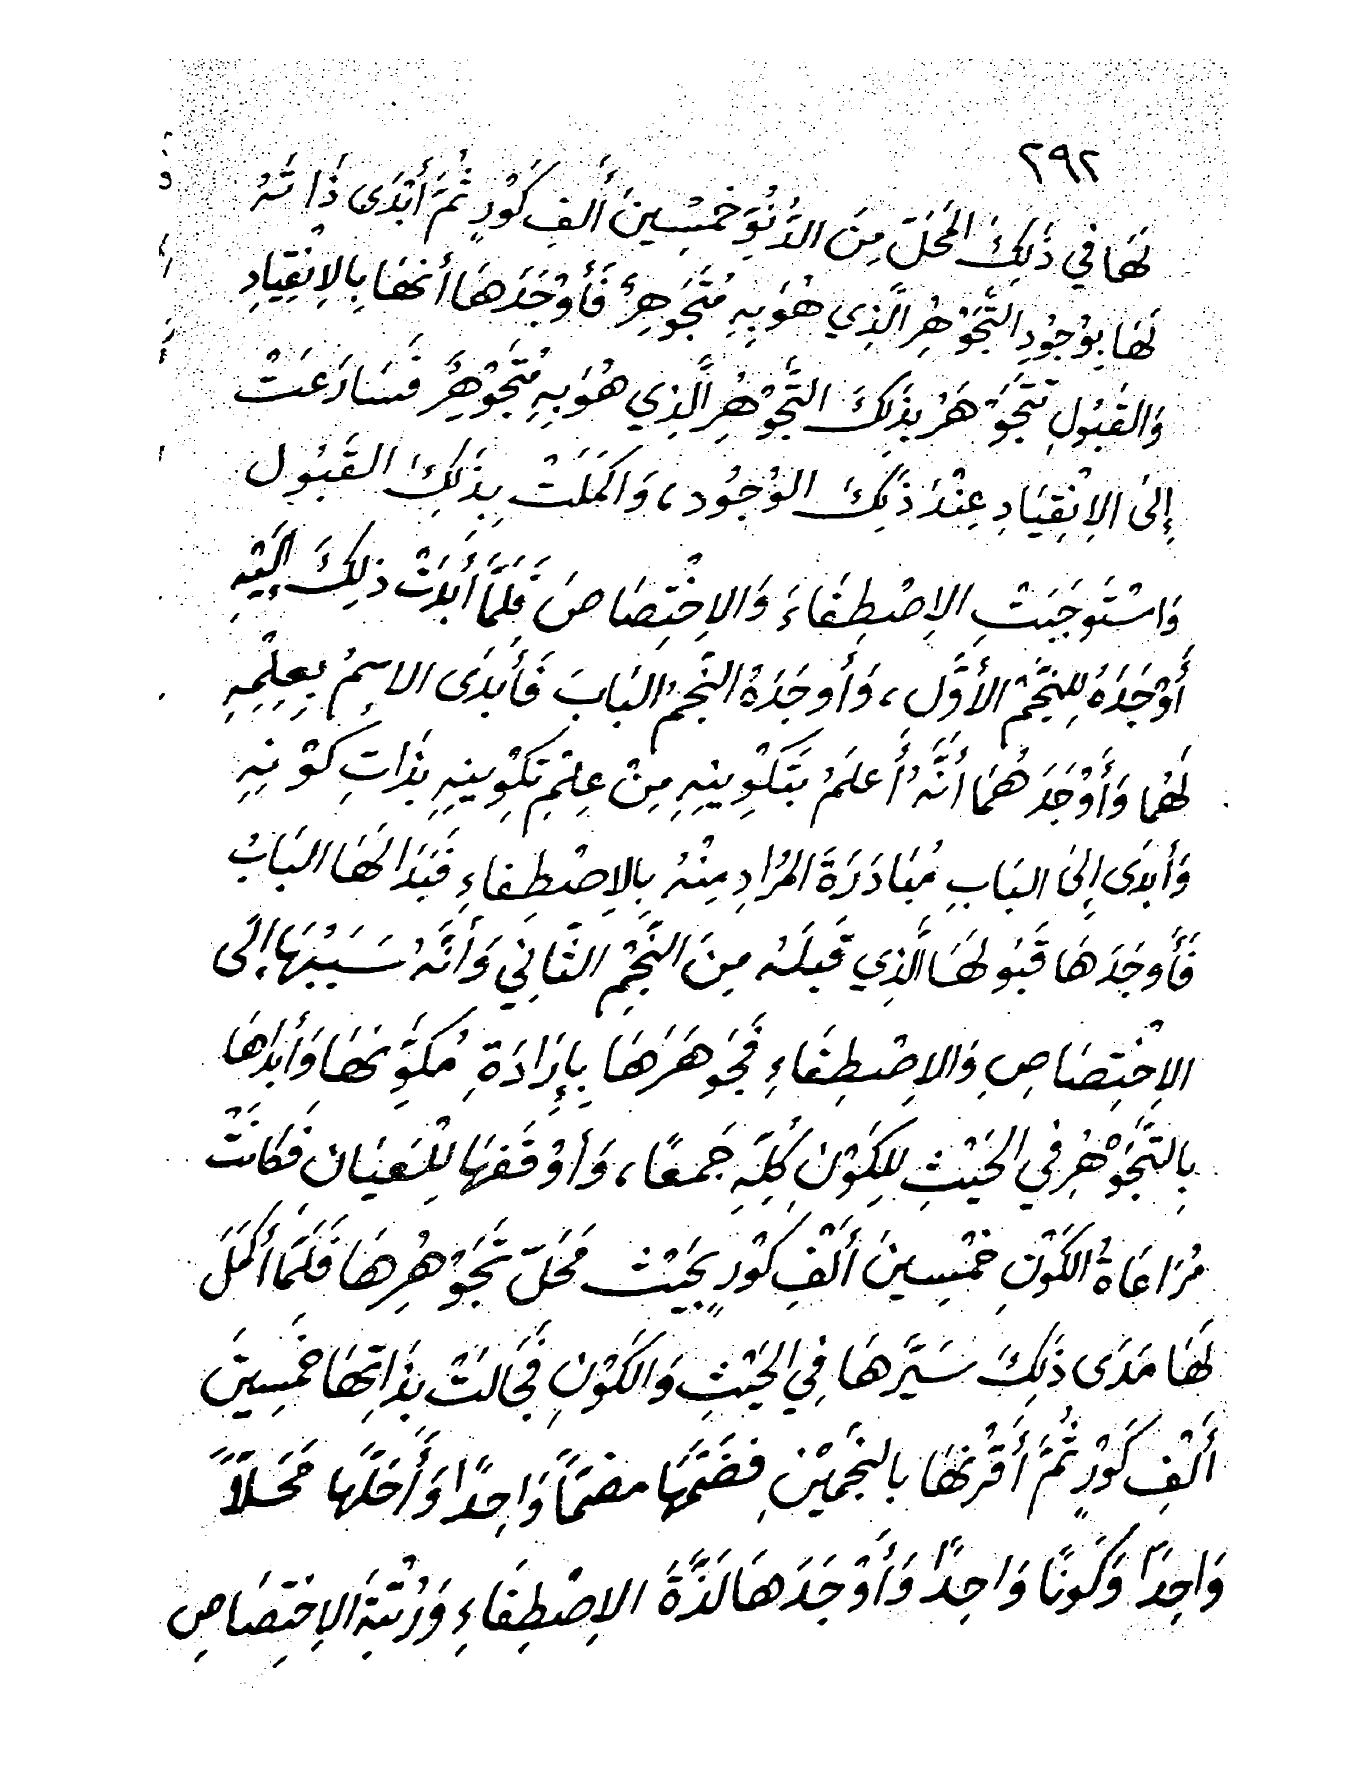 ٢٩٢
لَهَا في ذَلِكَ المَحَلّ مِنَ الدُّنُوِّ خَمْسِينَ أَلفِ كَوْرٍ ثُمَّ أَبْدَى ذَاتَهُ
لَهَا بِوُجُودِ التَّجَوْهُرِ الَّذِي هُوَ بِهِ مُتَجَوْهِرٌ فَأَوْجَدَهَا أَنَّهَا بِالِانْقِيَادِ
وَالقَبُولِ تَتَجَوْهَرُ بِذَلِكَ التَّجَوْهُرِ الَّذِي هُوَ بِهِ مُتَجَوْهِرٌ فَسَارَعَتْ
إِلَى الِانْقِيَادِ عِنْدَ ذَلِكَ الوُجُود، وَاكمَلَتْ بِذَلِكَ القَبُول
وَاسْتَوجَبَتِ الِاصْطِفَاءَ وَالِاخْتِصَاصَ فَلَمَّا أَبْدَتْ ذلِكَ إِلَيْهِ
أَوْجَدَهُ لِلنَّجْم الأَوَّل، وَأَوجَدَهُ النَّجمُ البَابَ فَأَبدَى الاسِمُ بِعِلْمِهِ
لَهُما وَأَوْجَدَهُمَا أَنَّهُ أَعلَمُ بَتَكْوِينِهِ مِنْ عِلْمِ تَكوِينِهِ بِذَاتِ كَوْنِهِ
وَأَبدَى إِلىَ البَابِ مُبَادَرَةَ المُرَادِ مِنْهُ بِالِاصْطِفاءِ فَبَدَا لَهَا البَابُ
فَأَوجَدَهَا قَبُولَهَا الَّذِي قَبِلَتهُ مِنَ النَّجْمِ الثَّانِي وَأَنَّهُ سَبَبُهَا إِلَى
الِاخْتِصَاصِ وَالِاصْطِفَاءِ فَجَوهَرَهَا بِإِرَادَةِ مُكَوِّنهَا وَأَبدَاهَا
بِالتَّجَوْهُرِ في الحَيْثِ لِلكَوْنِ كُلِّهِ جَمعًا، وَأوْقَفَهَا لِلْعَيَان فَكَانَتْ
مُرَاعَاةُ الكَوْنِ خَمْسِينَ أَلْفِ كَوْرٍ بِحَيْث مَحَلّ تَجَوْهُرِهَا فَلَمَّا أَكمَلَ
لَهَا مَدَى ذَلِكَ سَيَّرَهَا فِي الحَيْثِ وَالكَوْنِ فَجَالَتْ بِذَاتِهَا خَمْسِينَ
أَلْفِ كَوْرٍ ثُمَّ أَقْرَنَهَا بالنَّجمَيْنِ فضَمَّهَا ضَمًّا وَاحِدًا وَأَحَلَّهَا مَحَلّاً
وَاحِدًا وَكَونًا وَاحِدًا وَأَوْجَدَهَا لَذَّةَ الِاصْطِفَاءِ وَرُتْبَةَ الِاخْتِصَاصِ